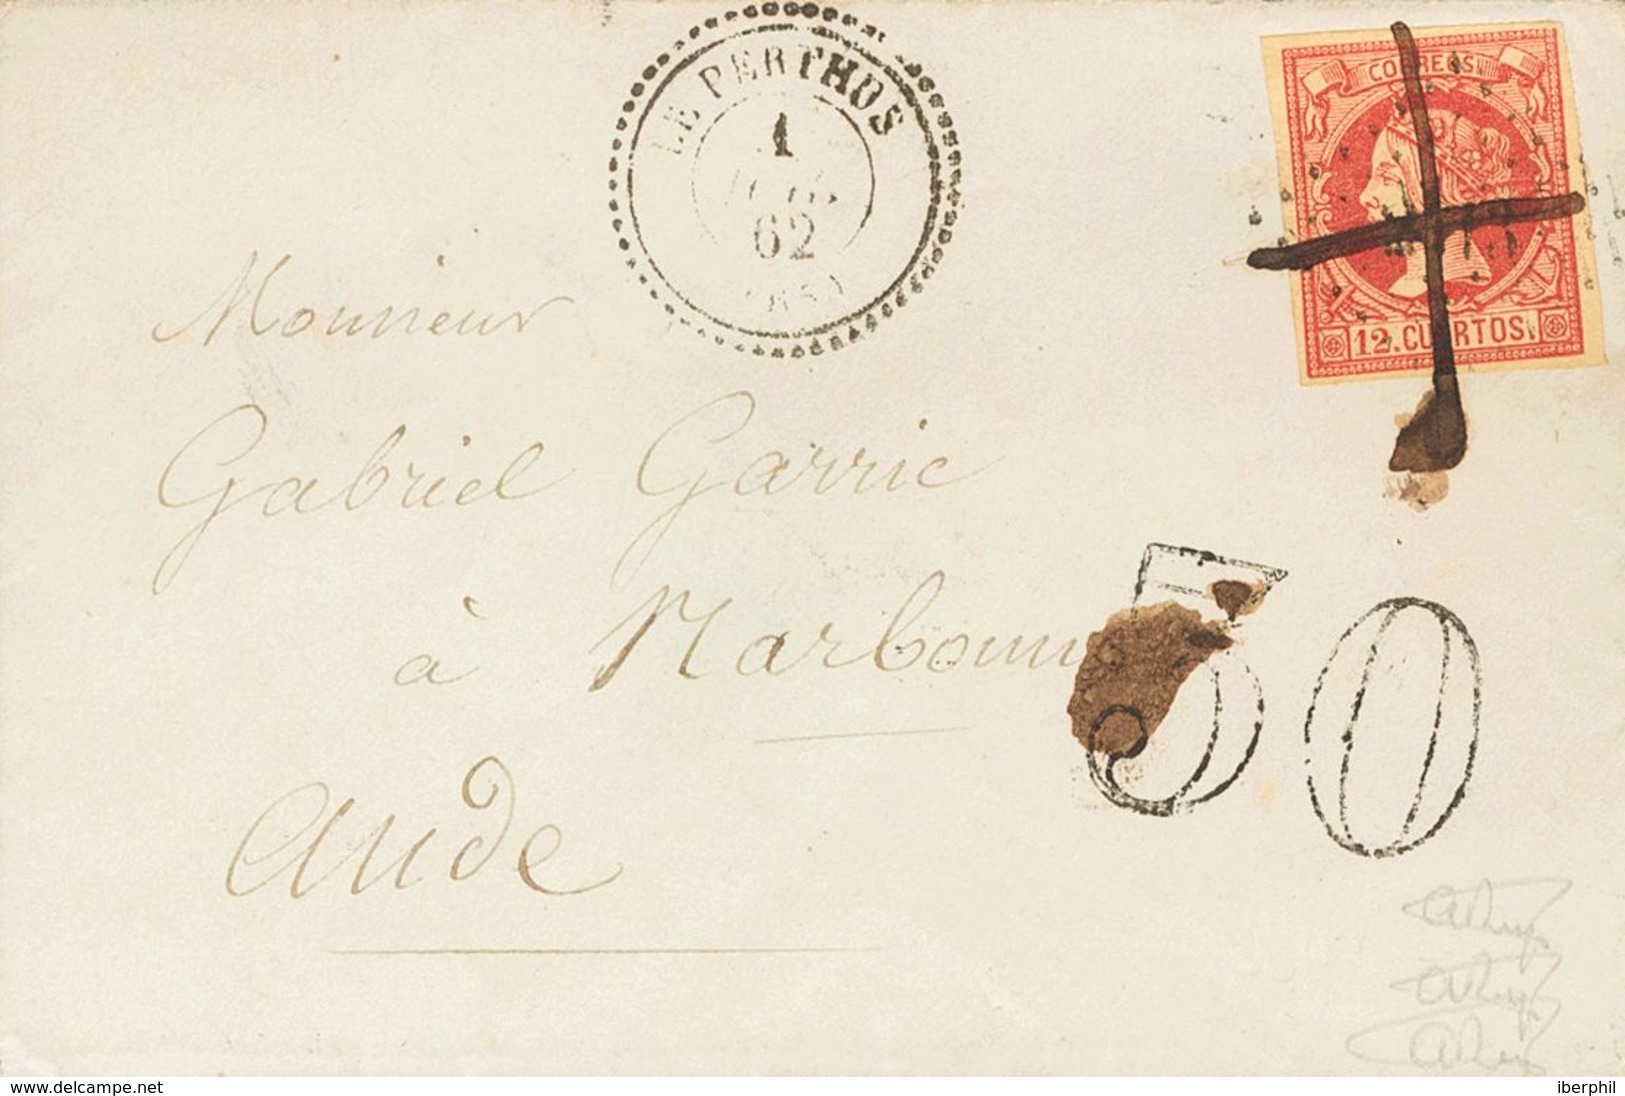 LE PERTHUS
1
62
CORREOS
12.CUARTOS.
Monsieur
Gabriel Garric
à Narbonne
Aude
50
www.delcampe.net
iberphil